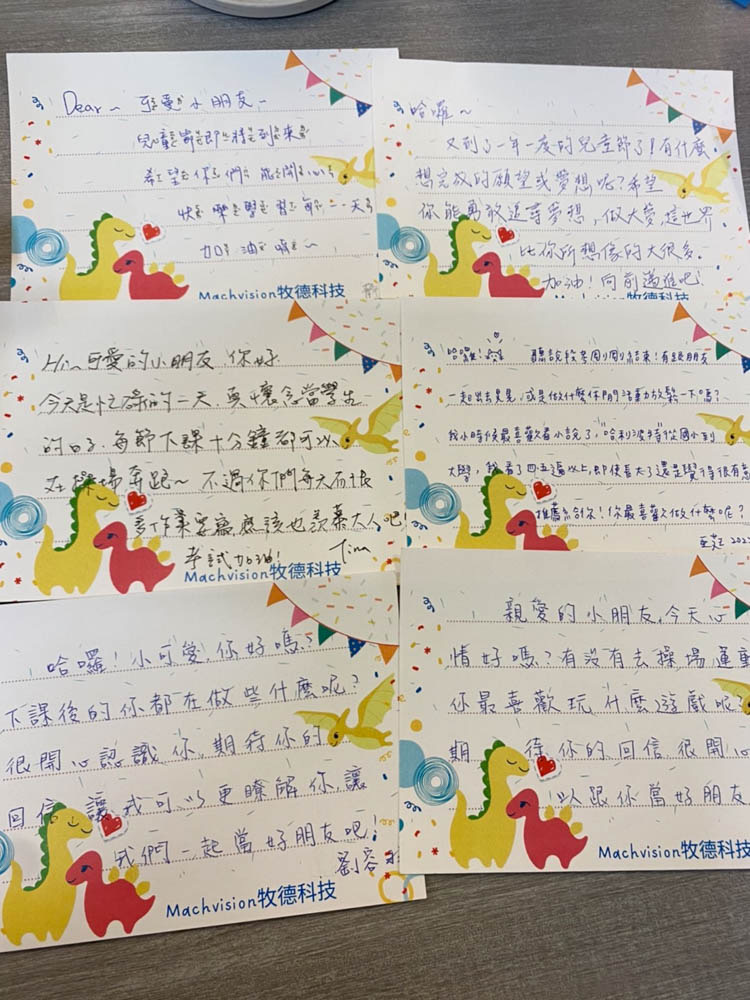 Dear~ 可愛小朋友~
兒童節即將到來
希望你們能開心
快樂學習每一天
加油喔~
Machvision牧德科技
哈囉~
又到了一年一度的兒童節了!有什麼
想完成的願望或夢想呢?希望
你能勇敢追尋夢想,做大夢,這世界
比你所想像的大很多.
加油!向前邁進吧!
Machvision牧德科技
Hi~可愛的小朋友 你好
今天是忙碌的一天,真懷念當學生
的日子,每節下課十分鐘都可以
在操場奔跑~ 不過你們每天有很
多作業要寫應該也羨慕大人吧!
考試加油! Tim
Machvision牧德科技
哈囉! 聽說段考剛剛結束!有跟朋友
一起出去晃晃,或是做什麼休閒活動放鬆一下嗎?
我小時候最喜歡看小說了,"哈利波特"從國小到
大學,我看了四五遍以上,即使長大了還是覺得很有
推薦給你!你最喜歡做什麼呢?
Machvision牧德科技
哈囉!小可愛,你好嗎?
下課後的你都在做些什麼呢?
很開心認識你,期待你的
回信,讓我可以更瞭解你,讓
我們一起當好朋友吧!
劉容
Machvision牧德科技
親愛的小朋友,今天心
情好嗎?有沒有去操場運動
你最喜歡玩什麼遊戲呢?
期待你的回信,很開心
以跟你當好朋友
Machvision牧德科技